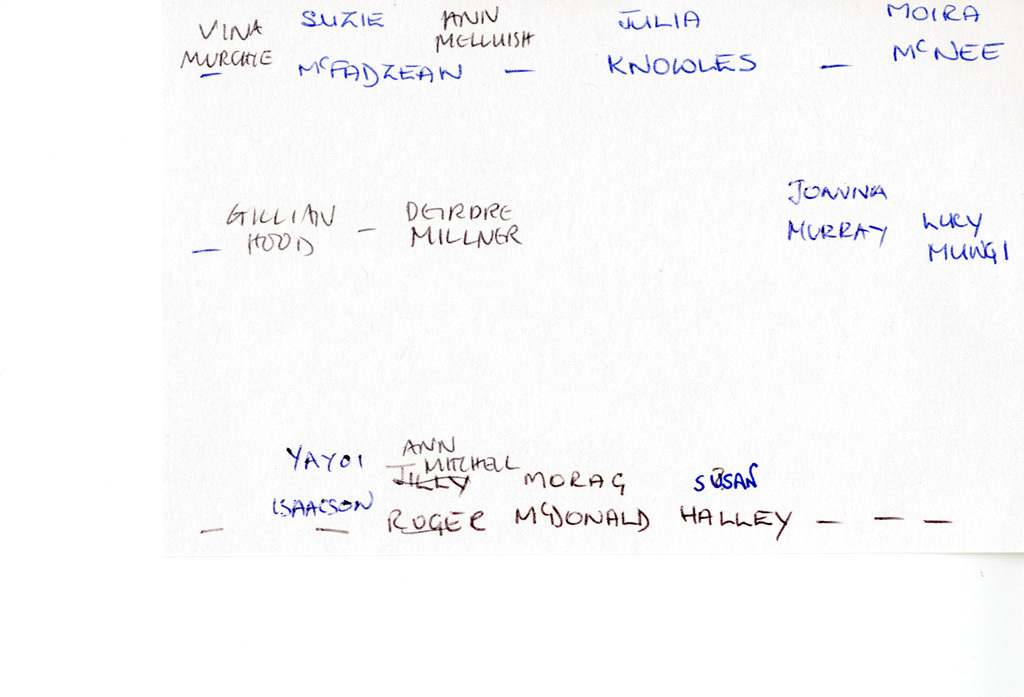 VINA SUZIE ANN JULIA MOIRA
MURCHIE McFADZEAN MELLUISH — KNOWLES — McNEE
—
JOANNA
GILLIAN — DEIRDRE MURRAY LUCY
— HOOD MILLNER MUNGI
YAYOI ANN
MITCHELL
ISAACSON JILLY MORAG SUSAN
— — ROGER McDONALD HALLEY — — —